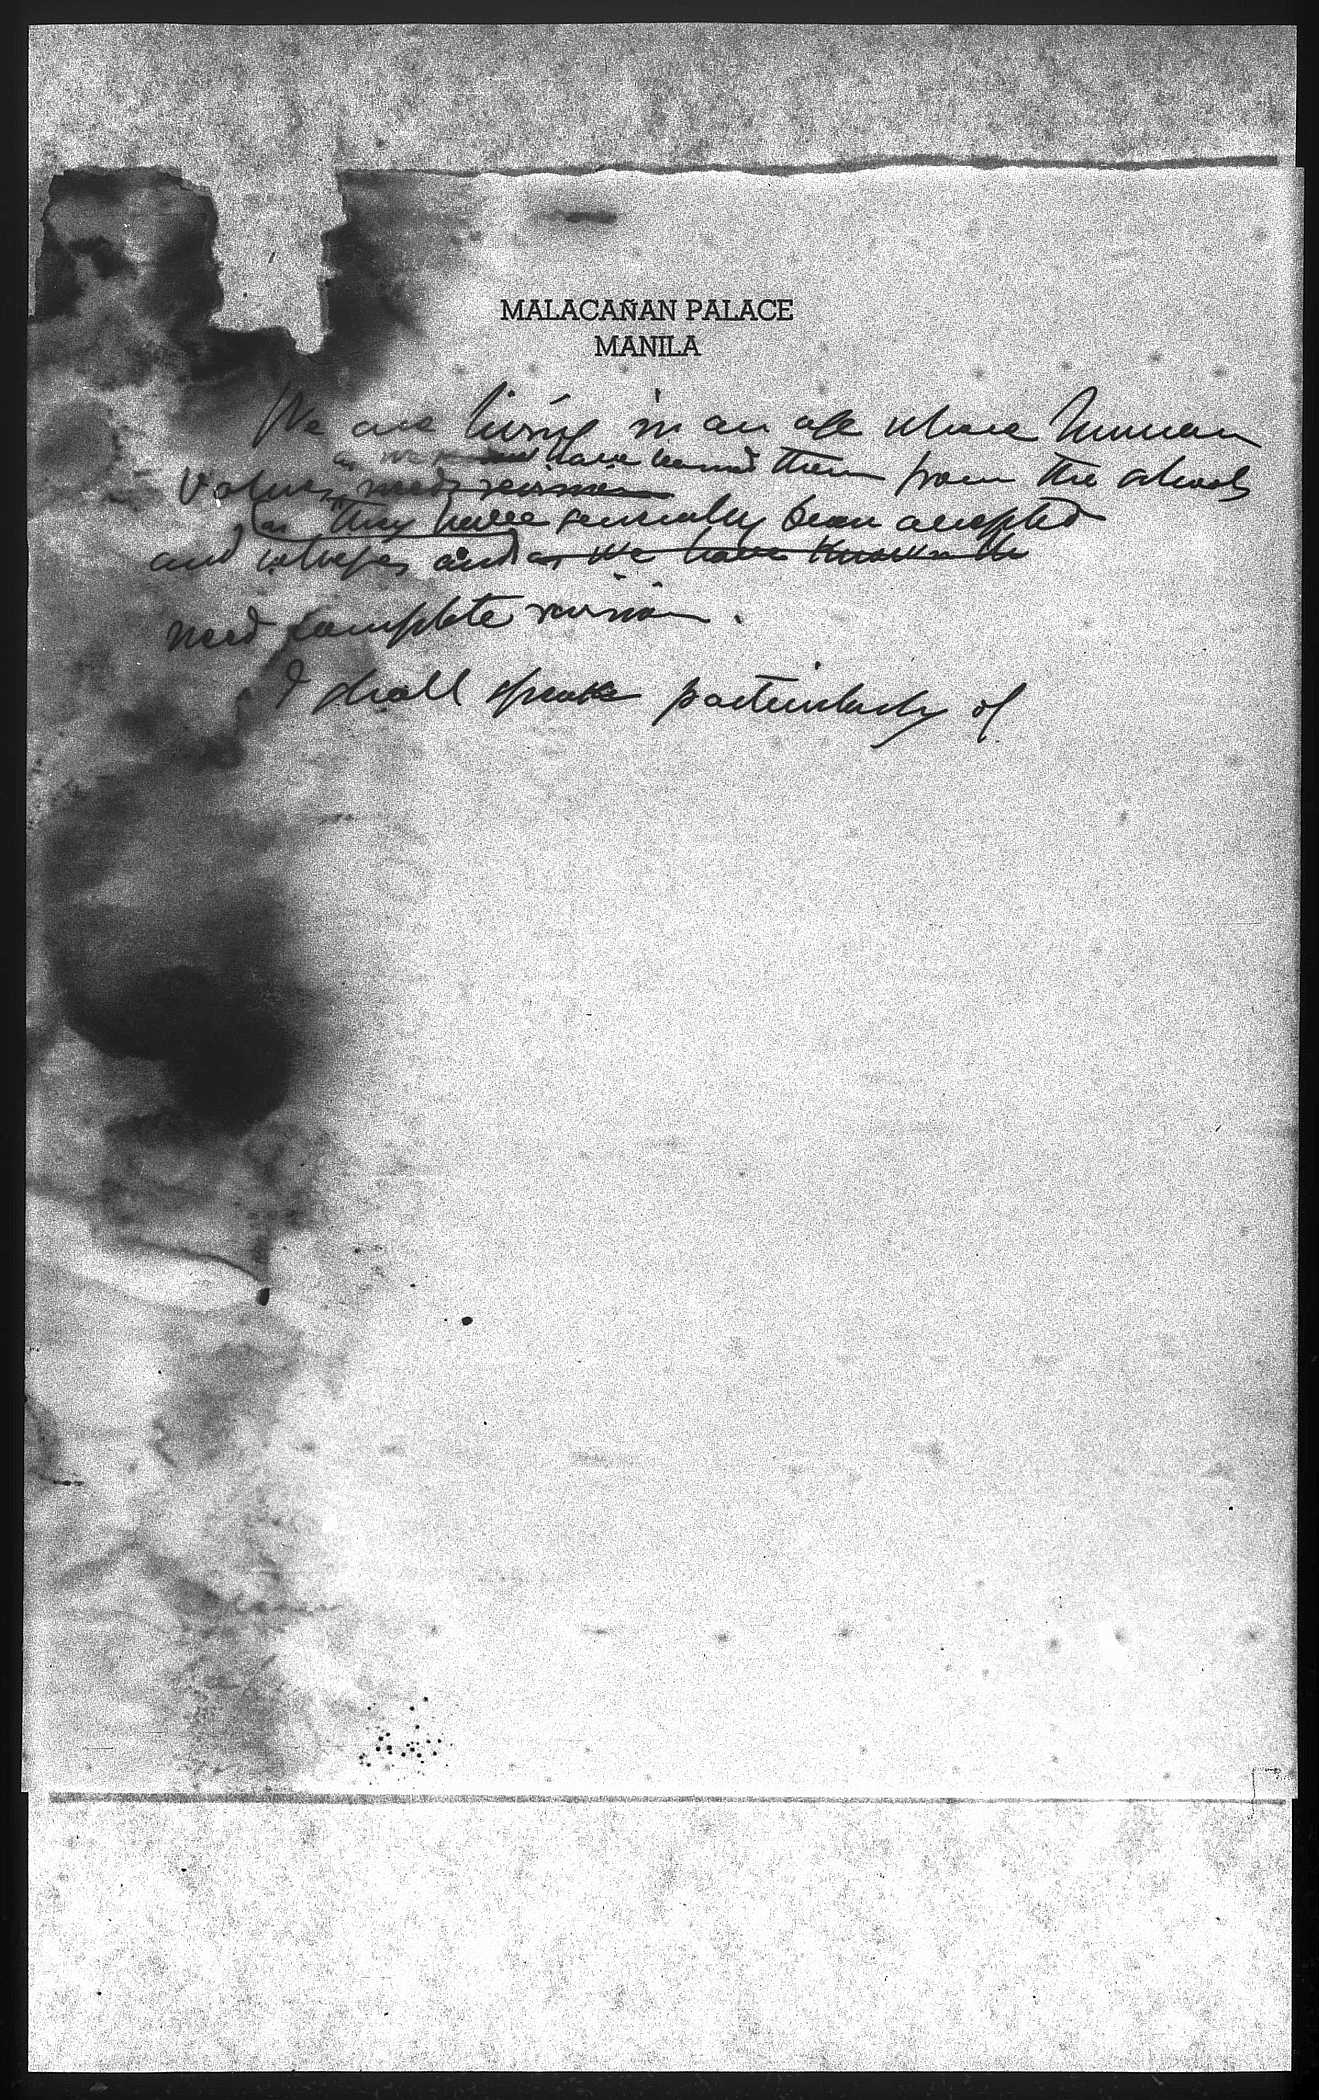 MALACAÑAN PALACE
MANILA
We are living in an age where human
as we have learned them from the schools
values, need revision
as they have generally been accepted
and colleges and as we have known th
need complete revision.
I shall speak particularly of